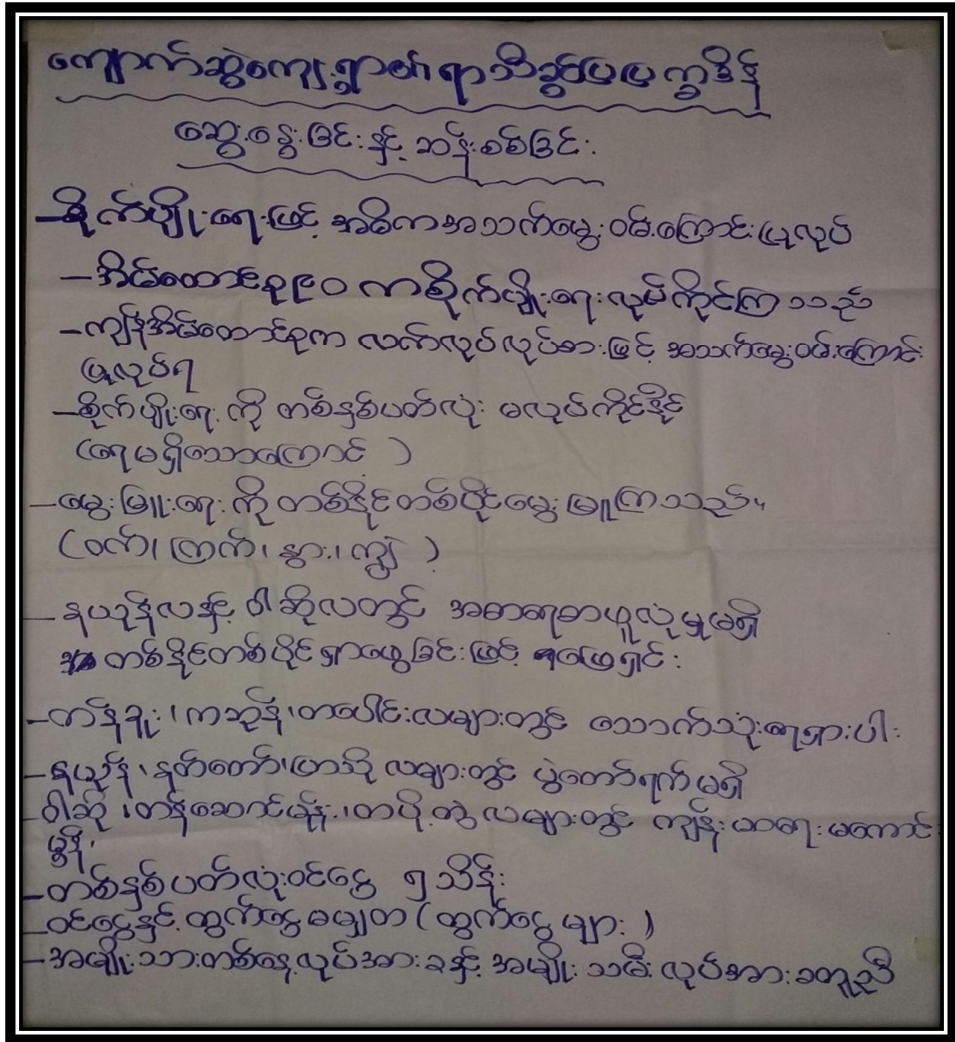 ကျောက်ဆွဲကျေးရွာ၏ ရာသီခွင်ပြပြက္ခဒိန်
ဆွေးနွေးခြင်းနှင့် ဆန်းစစ်ခြင်း
-စိုက်ပျိုးရေးဖြင့် အဓိကအသက်မွေးဝမ်းကြောင်းပြုလုပ်
-အိမ်ထောင်စု၉၀ ကစိုက်ပျိုးရေးလုပ်ကိုင်ကြသည်
-ကျန်အိမ်ထောင်စုက လက်လုပ်လုပ်စားဖြင့် အသက်မွေးဝမ်းကြောင်း
ပြုလုပ်ရ
-စိုက်ပျိုးရေးကို တစ်နှစ်ပတ်လုံး မလုပ်ကိုင်နိုင်
(ရေမရှိသောကြောင့်)
-မွေးမြူးရေးကို တစ်နိုင်တစ်ပိုင်မွေးမြူကြသည်။
(ဝက်၊ ကြက်၊ နွား၊ ကျွဲ)
-နယုန်လနှင့် ဝါဆိုလတွင် အစာရေစာဖူလုံမှုမရှိ
တစ်နိုင်တစ်ပိုင်ရှာဖွေခြင်းဖြင့် ဖြေရှင်း
-တန်ခူး၊ ကဆုန်၊ တပေါင်းလများတွင် သောက်သုံးရေရှားပါး
-နယုန်၊ နတ်တော်၊ ပြာသို လများတွင် ပွဲတော်ရက်မရှိ
-ဝါဆို၊ တန်ဆောင်မုန်း၊ တပို့တွဲ လများတွင် ကျန်းမာရေးမကောင်း
မွန်၊
-တစ်နှစ်ပတ်လုံးဝင်ငွေ ၅ သိန်း
-ဝင်ငွေနှင့် ထွက်ငွေမမျှတ (ထွက်ငွေများ)
-အမျိုးသားတစ်နေ့လုပ်အားခနှင့် အမျိုးသမီးလုပ်အားခတူညီ